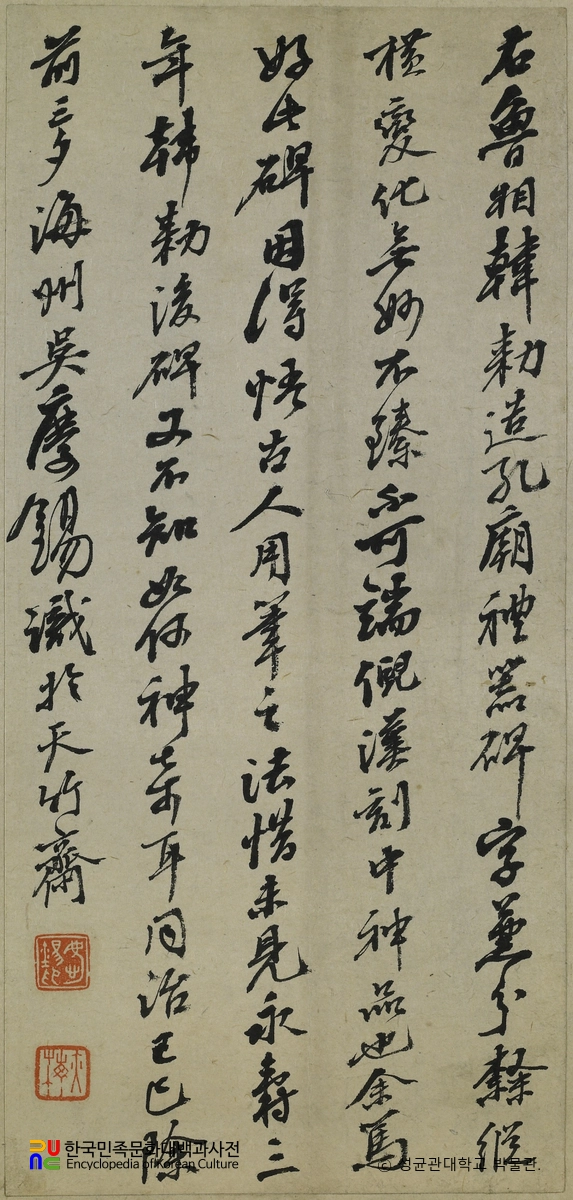 右魯相韓勅造孔廟禮器碑字兼分隸縱
橫變化无妙不臻不可端倪漢刻中神品也余篤
好此碑因得悟古人用筆之法惜未見永壽三
年韓勅後碑又不知如何神奇耳同治己巳除
前三夕海州吳慶錫識於天竹齋
한국민족문화대백과사전
Encyclopedia of Korean Culture
© 성균관대학교 박물관.